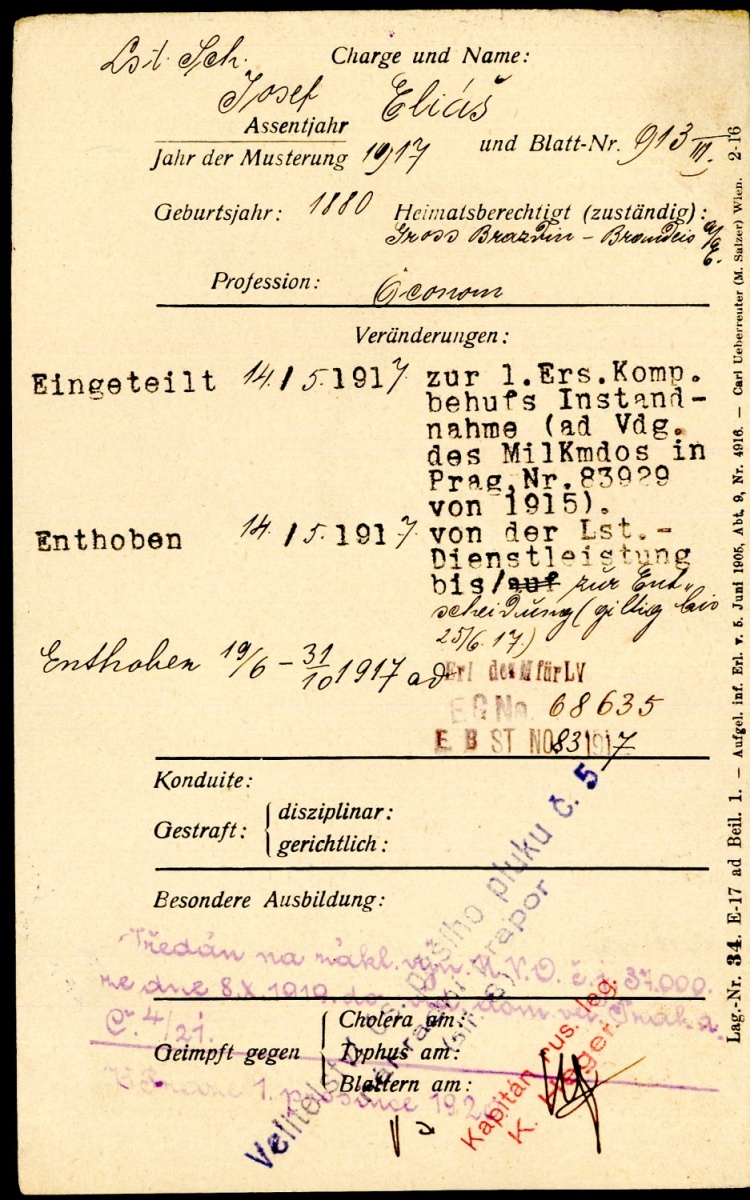 Lst. Sch. Charge und Name:
Josef Eliáš
Assentjahr
Jahr der Musterung 1917 und Blatt-Nr. 913 III.
Geburtsjahr: 1880 Heimatsberechtigt (zuständig):
Gross Brazdin - Brandeis a/E.
Profession: Öconom
Veränderungen:
Eingeteilt 14./5.1917 zur 1.Ers.Komp.
behufs Instand-
nahme (ad Vdg.
des MilKmdos in
Prag,Nr.83929
von 1915).
Enthoben 14./5.1917 von der Lst.-
Dienstleistung
bis/auf zur Ent-
scheidung (giltig bis
25/6.17.)
Enthoben 19/6 - 31/10 1917 ad Erl des M für LV
E G No. 68635
E B ST NO 83 1917
Konduite:
Gestraft: disziplinar:
gerichtlich:
Besondere Ausbildung:
na zákl. výn. M.N.O. č.j. 37.000.
ze dne 8.X.1919. do
Č. 4/21.
Geimpft gegen Cholera am:
Typhus am:
Blattern am:
1. prosince 192
Velitelství pěšího pluku č. 5
Náhradní prapor
Kapitán rus. leg.
K. Wieger.
Lag.-Nr. 34. E-17 ad Beil. 1. — Aufgel. inf. Erl. v. 5. Juni 1905, Abt. 9, Nr. 4916. — Carl Ueberreuter (M. Salzer) Wien. 2-16